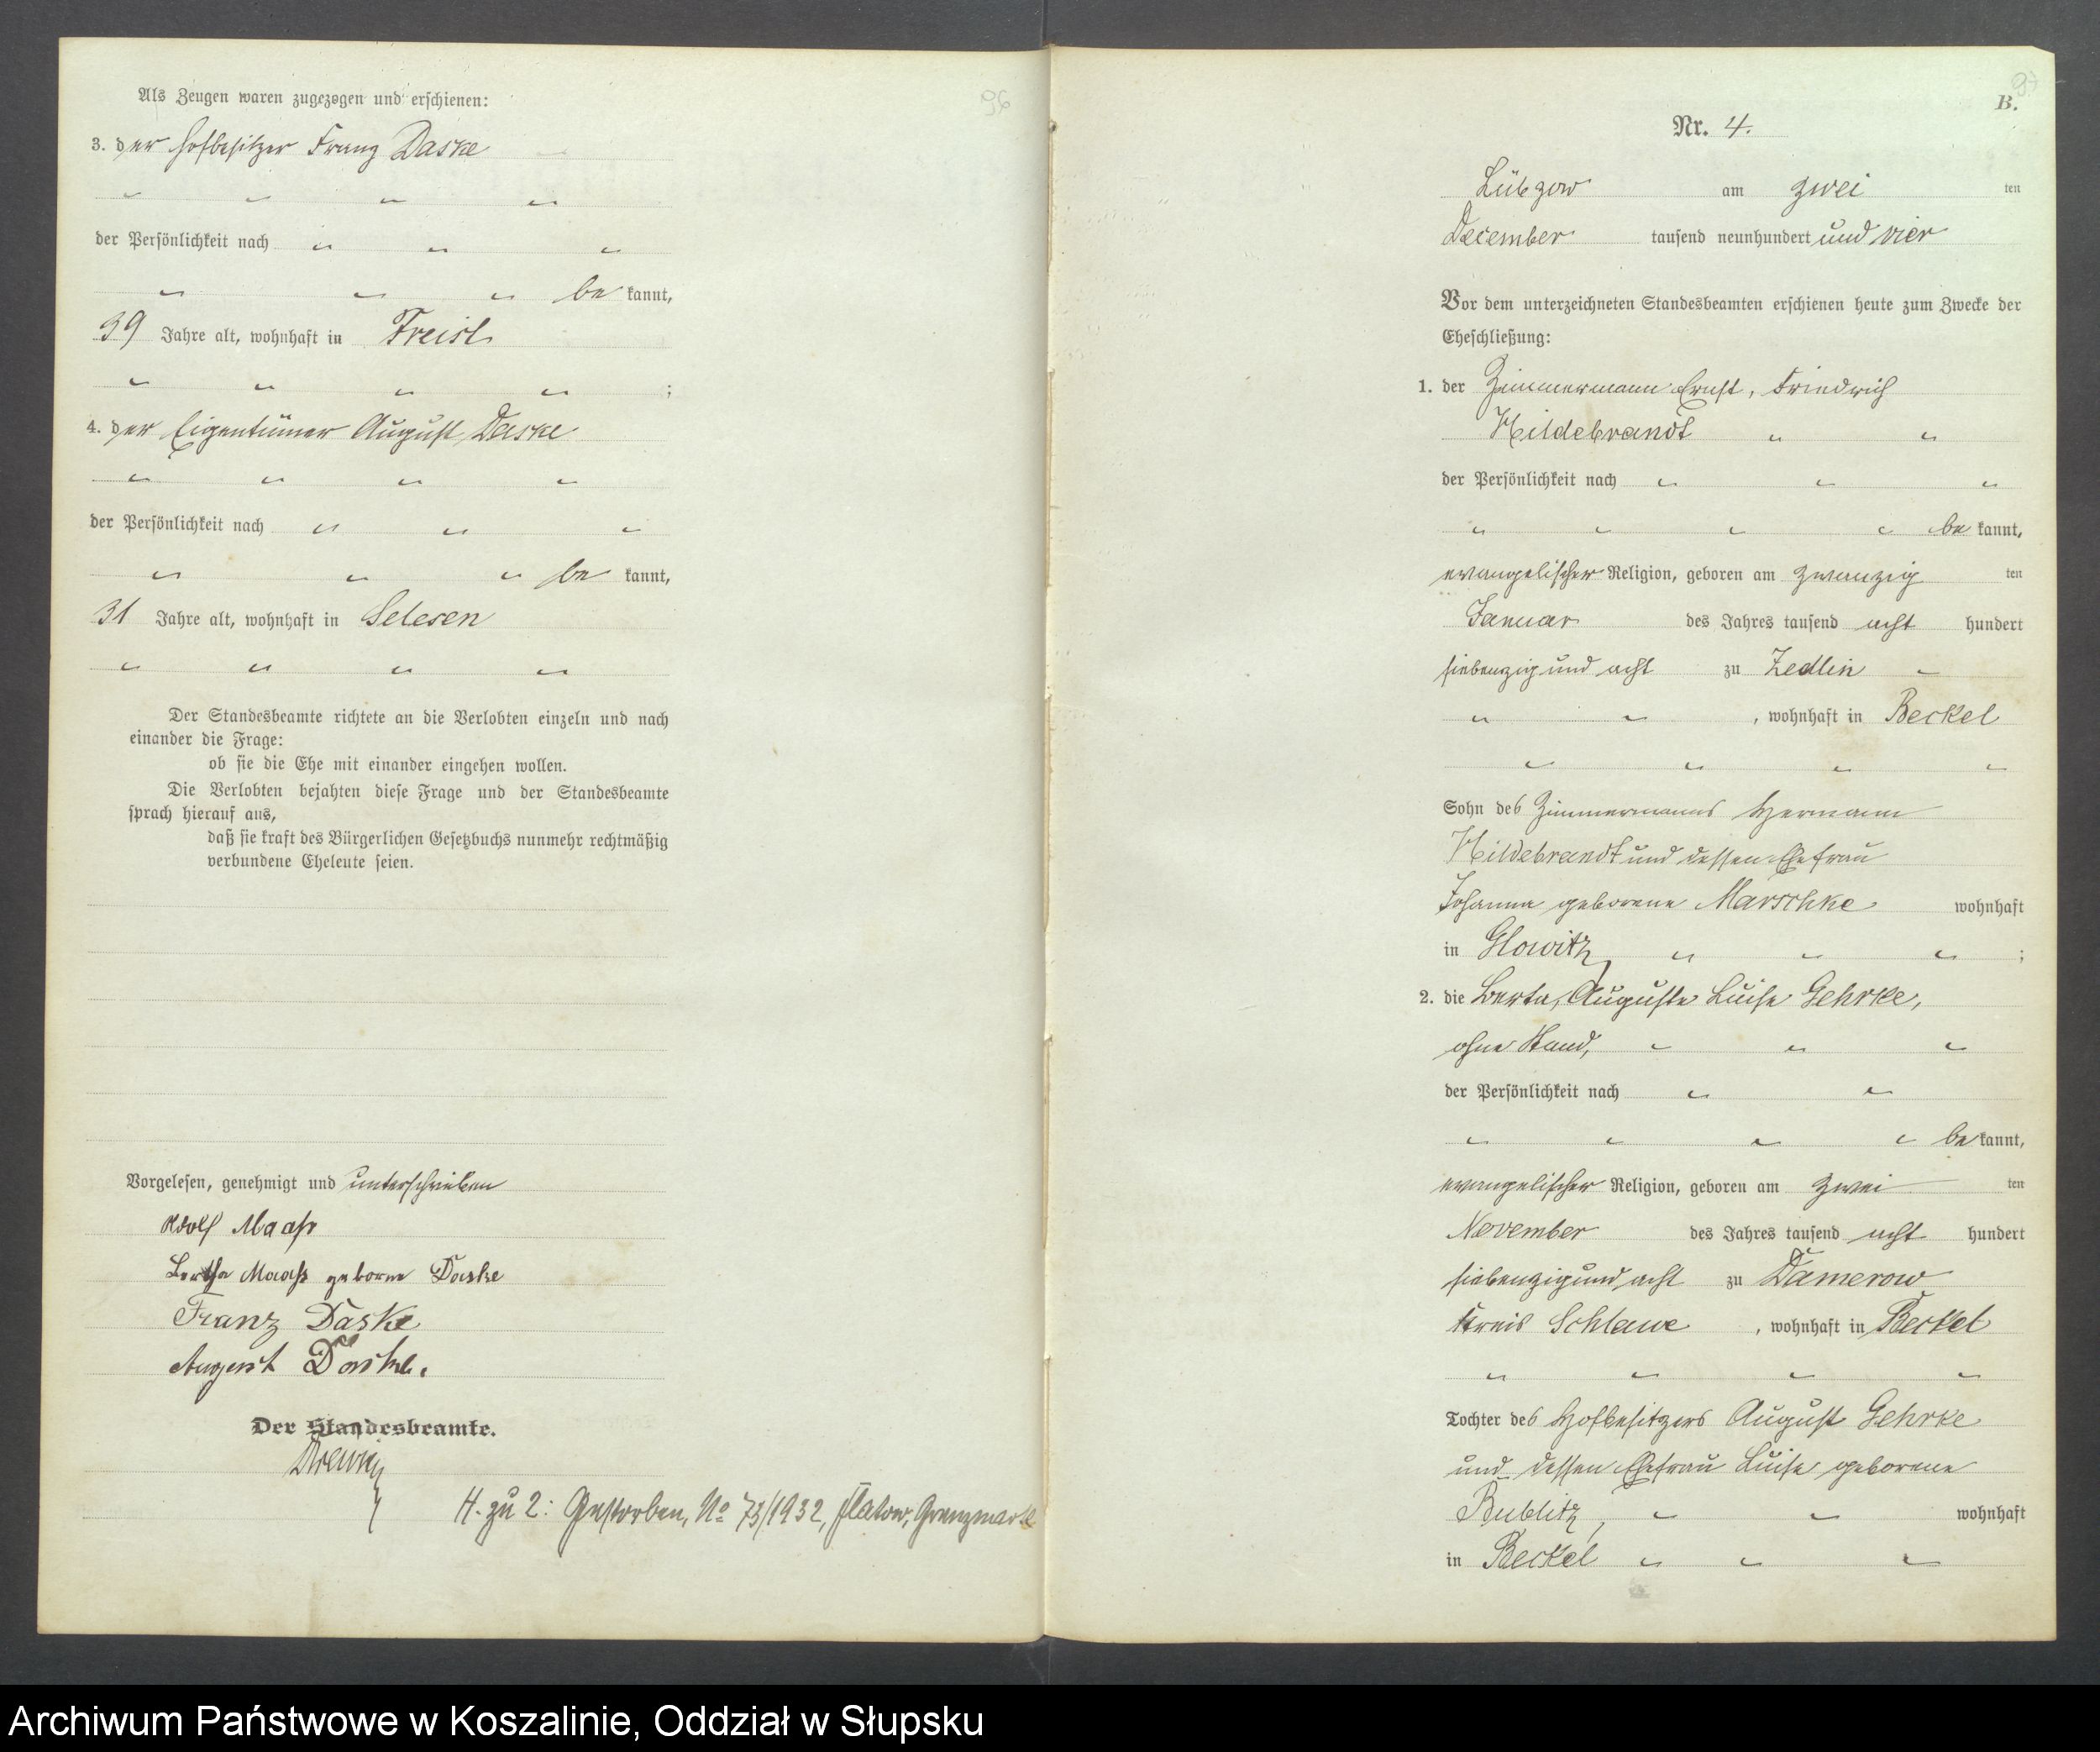 96
Als Zeugen waren zugezogen und erschienen:
3. der Hofbesitzer Franz Daske
" " " "
der Persönlichkeit nach " " "
" " " be kannt,
39 Jahre alt, wohnhaft in Freist
" " " " ;
4. der Eigentümer August Daske
" " " "
der Persönlichkeit nach " " "
" " " be kannt,
31 Jahre alt, wohnhaft in Selesen
" " " "
Der Standesbeamte richtete an die Verlobten einzeln und nach
einander die Frage:
ob sie die Ehe mit einander eingehen wollen.
Die Verlobten bejahten diese Frage und der Standesbeamte
sprach hierauf aus,
daß sie kraft des Bürgerlichen Gesetzbuchs nunmehr rechtmäßig
verbundene Eheleute seien.
Vorgelesen, genehmigt und unterschrieben
Adolf Maaß
Bertha Maaß geborne Daske
Franz Daske
August Daske.
Der Standesbeamte.
H. zu 2: Gestorben, No 73/1932, Flatow, Grenzmark
97
B.
Nr. 4.
Lübzow am zwei ten
December tausend neunhundert und vier
Vor dem unterzeichneten Standesbeamten erschienen heute zum Zwecke der
Eheschließung:
1. der Zimmermann Ernst, Friedrich
Hildebrandt " "
der Persönlichkeit nach " " "
" " " " be kannt,
evangelischer Religion, geboren am zwanzig ten
Januar des Jahres tausend acht hundert
siebenzig und acht zu Zedlin "
" " , wohnhaft in Beckel
" " " "
Sohn des Zimmermanns Hermann
Hildebrandt und dessen Ehefrau
Johanna geborene Marschke wohnhaft
in Glowitz, " " " ;
2. die Berta, Auguste Luise Gehrke,
ohne Stand, " " "
der Persönlichkeit nach " "
" " " " be kannt,
evangelischer Religion, geboren am zwei ten
November des Jahres tausend acht hundert
siebenzig und acht zu Damerow
Kreis Schlawe , wohnhaft in Beckel
" " " "
Tochter des Hofbesitzers August Gehrke
und dessen Ehefrau Luise geborene
Bublitz, " " wohnhaft
in Beckel " " "
Archiwum Państwowe w Koszalinie, Oddział w Słupsku